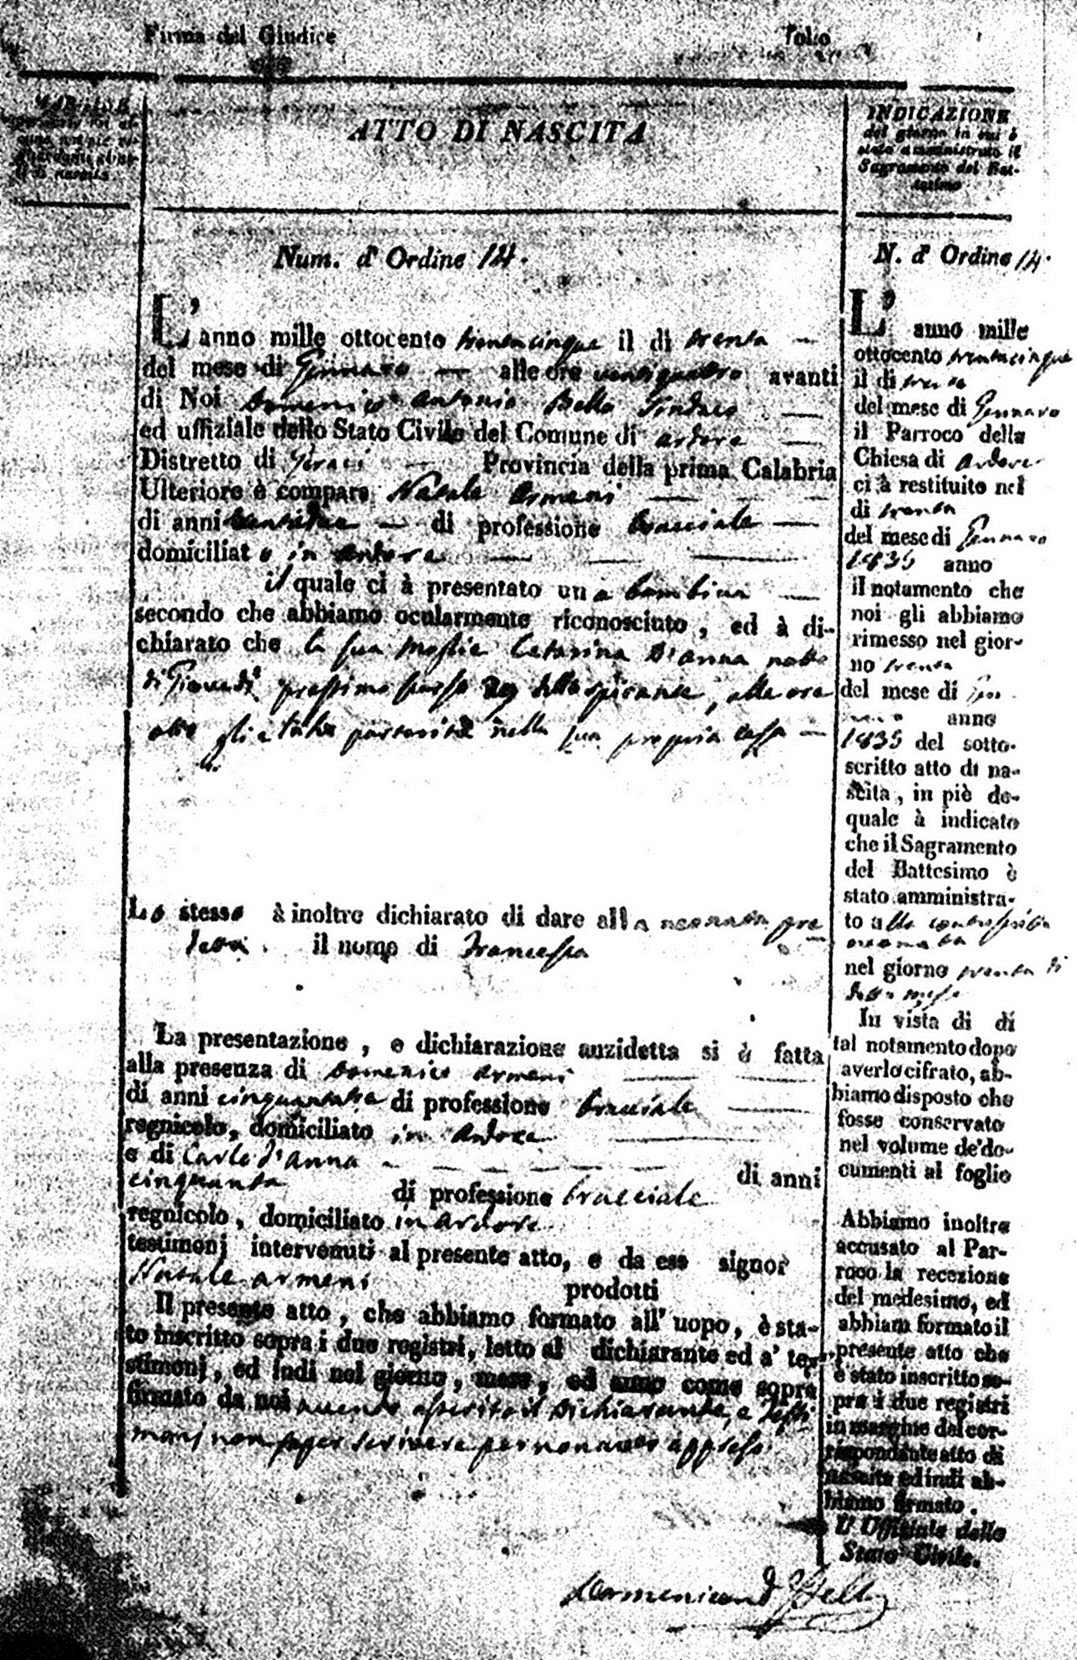 Firma del Giudice
Folio
ATTO DI NASCITA
Num. d' Ordine 14.
L' anno mille ottocento trentacinque il di trenta
del mese di Gennaro alle ore ventiquattro avanti
di Noi Domenico Antonio Bello Sindaco
ed uffiziale dello Stato Civile del Comune di Ardore
Distretto di Geraci Provincia della prima Calabria
Ulteriore è comparso Natale Armeni
di anni di professione bracciale
domiciliato in Ardore
il quale ci à presentato una bambina
secondo che abbiamo ocularmente riconosciuto, ed à di-
chiarato che la sua moglie Catarina D'Anna
di Giovedì prossimo alle ore
otto nella sua propria casa
Lo stesso à inoltre dichiarato di dare alla neonata pre
detta. il nome di Francesca
La presentazione, e dichiarazione anzidetta si è fatta
alla presenza di Domenico Armeni
di anni di professione bracciale
regnicolo, domiciliato in Ardore
e di Carlo d'Anna di anni
cinquanta di professione bracciale
regnicolo, domiciliato in Ardore
testimonj intervenuti al presente atto, e da ess signor
Natale Armeni prodotti
Il presente atto, che abbiamo formato all' uopo, è sta-
to inscritto sopra i due registri, letto al dichiarante ed a' te-
stimonj, ed indi nel giorno, mese, ed anno come sopra
firmato da noi avendo asserito il Dichiarante, e Testi
monj non saper scrivere per non aver appreso
INDICAZIONE
del giorno in cui è
stato amministrato il
Sagramento del Bat-
tesimo
N. d' Ordine 14.
L' anno mille
ottocento trentacinque
il di trenta
del mese di Gennaro
il Parroco della
Chiesa di Ardore
ci à restituito nel
di trenta
del mese di Gennaro
1835 anno
il notamento che
noi gli abbiamo
rimesso nel gior-
no trenta
del mese di Gen
naro anno
1835 del sotto-
scritto atto di na-
scita, in piè de-
quale à indicato
che il Sagramento
del Battesimo è
stato amministra-
to alla
neonata
nel giorno trenta di
detto mese
In vista di di
tal notamento dopo
averlo cifrato, ab-
biamo disposto che
fosse conservato
nel volume de'do-
cumenti al foglio
Abbiamo inoltre
accusato al Par-
roco la recezione
del medesimo, ed
abbiam formato il
presente atto che
è stato inscritto so-
pra i due registri
in margine del cor-
rispondente atto di
nascita ed indi ab-
biamo firmato.
L' Uffiziale dello
Stato Civile.